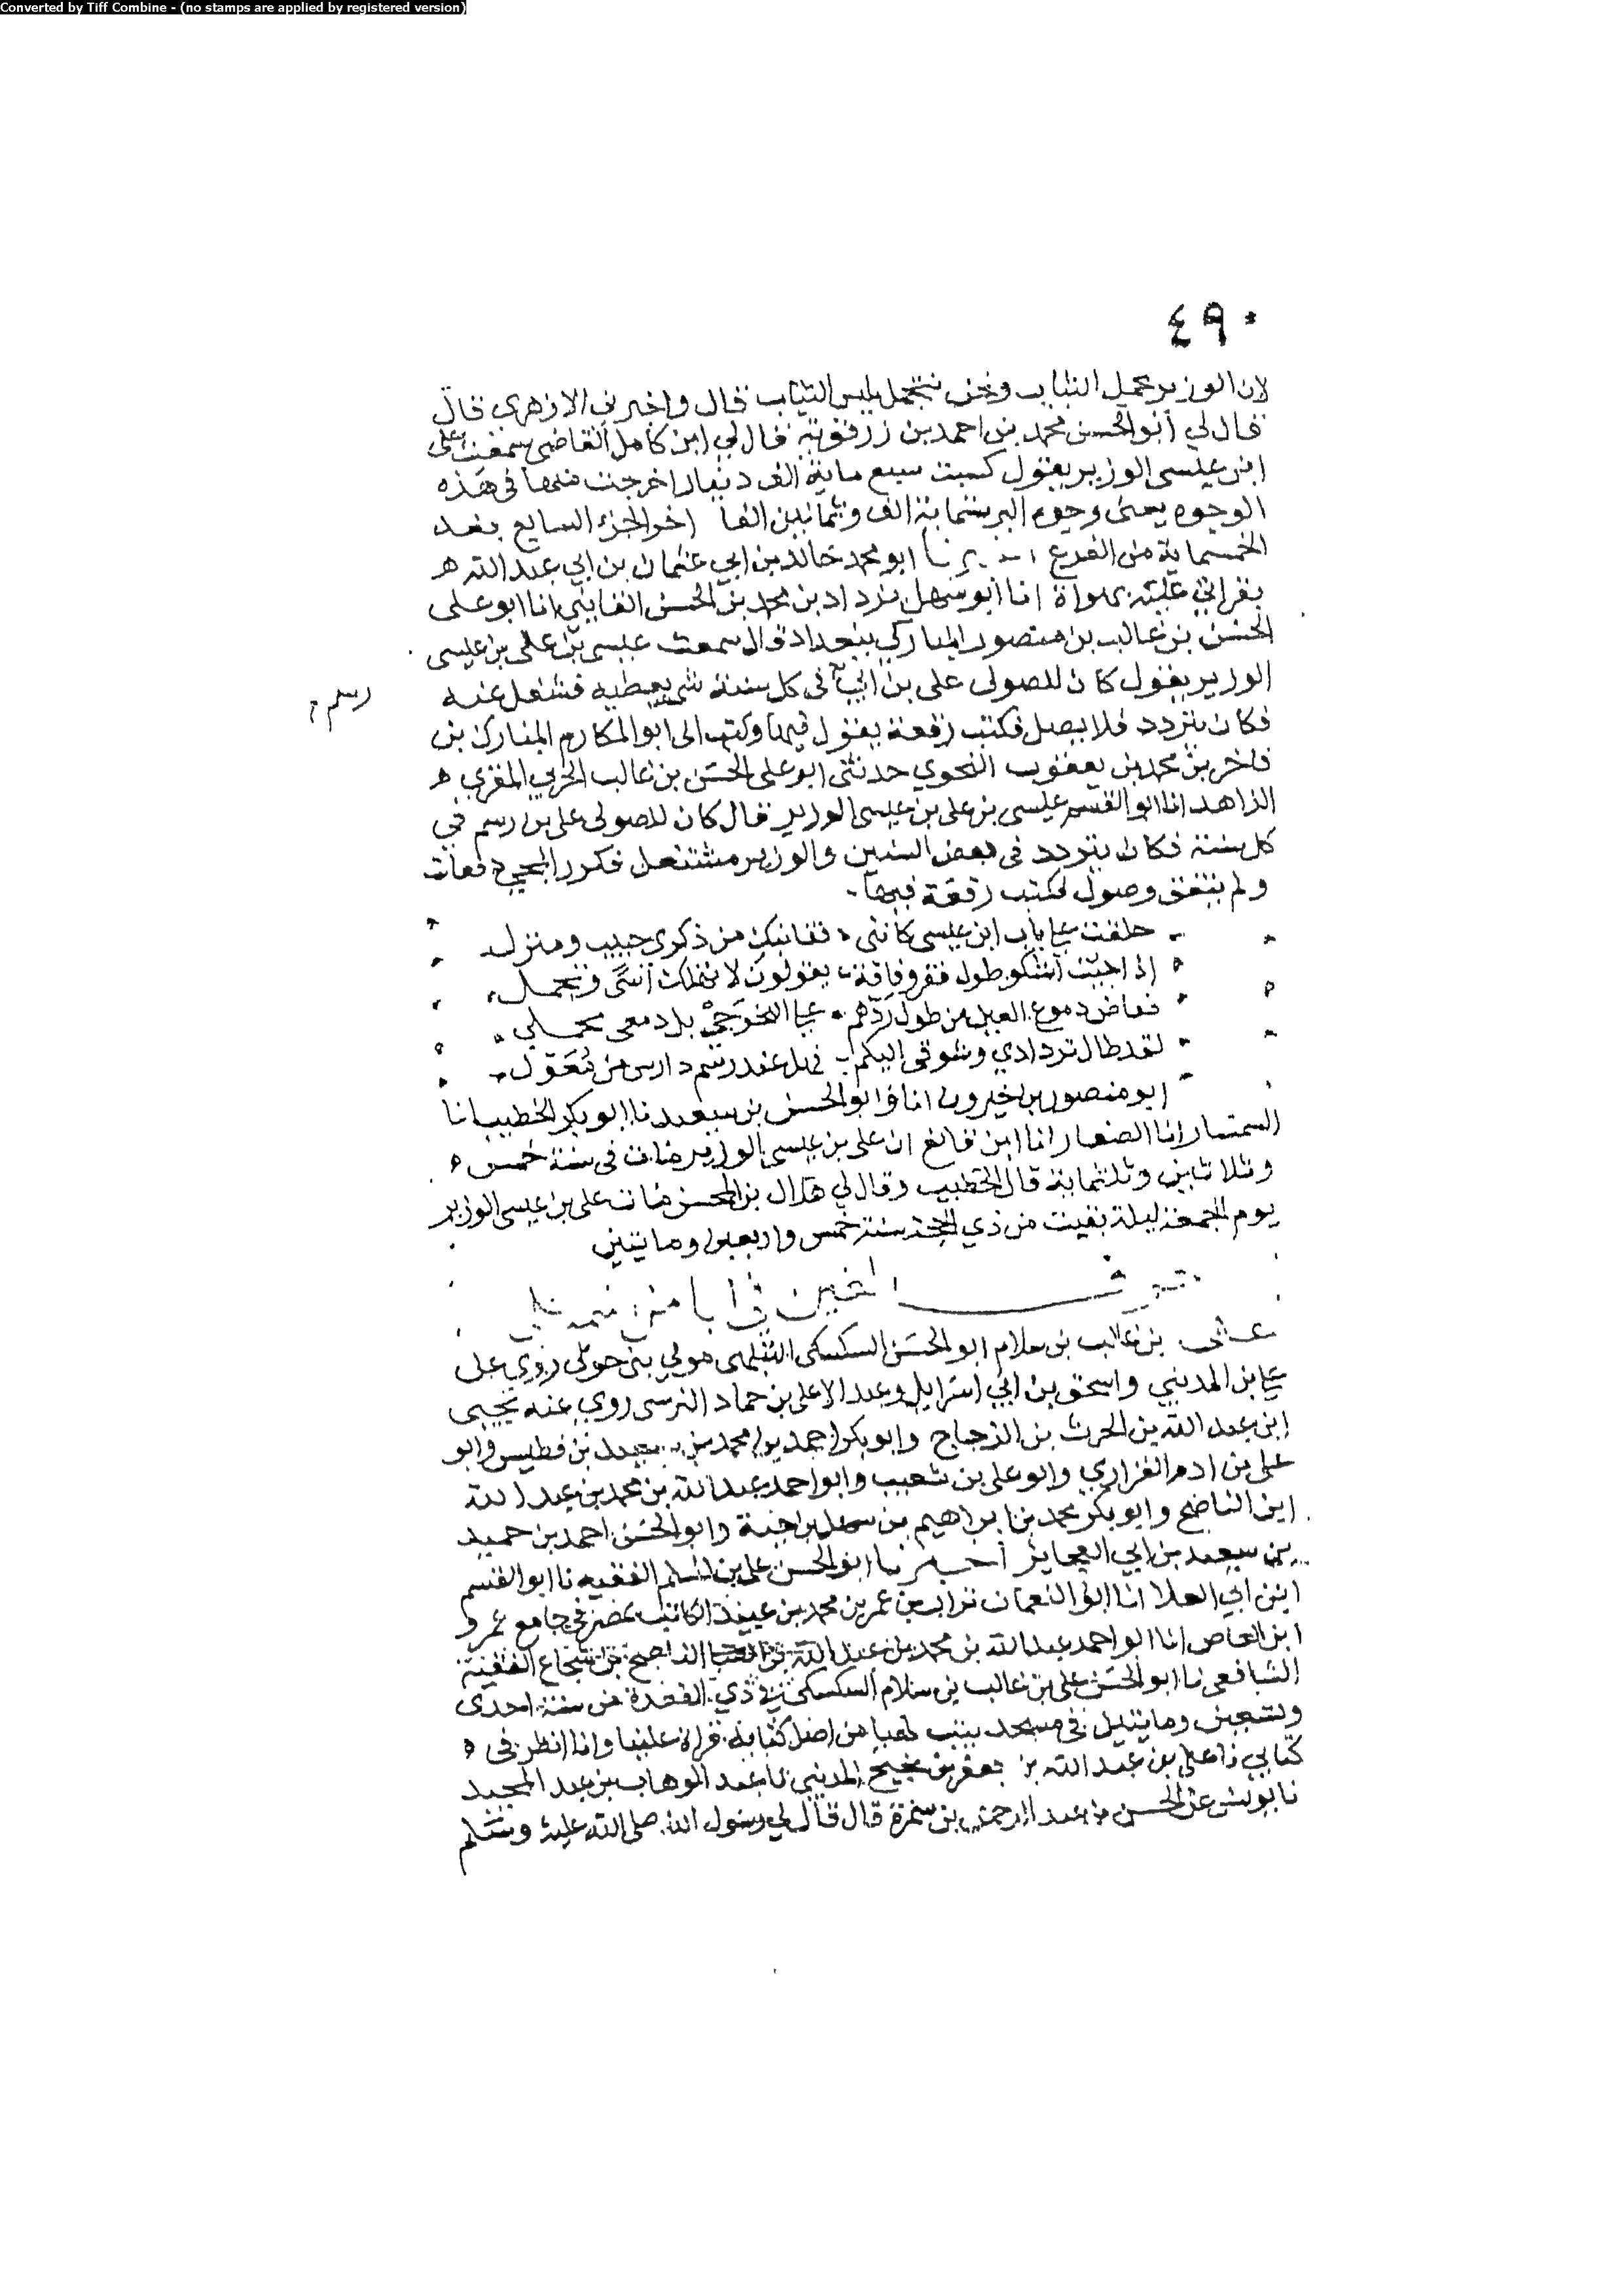 Converted by Tiff Combine - (no stamps are applied by registered version)
٤٩٠
لان الوزير يجمل الثياب ونحن نتجمل بلبس الثياب قال واخبرني الازهري قال
قال لي أبو الحسن محمد بن احمد بن زرقويه قال لي ابن كامل القاضي سمعت علي
ابن عيسى الوزير يقول كسبت سبع ماية الف دينار اخرجت منها في هذه
الوجوه يعني وجوه البر ستماية الف وثمانين الفا اخر الجزء السابع بعد
الخمسماية من الفرع ابو محمد خالد بن ابي عثمان بن ابي عبد الله
بقراتي عليه بهراة انا ابو سهل يزداد بن محمد بن الحسن انا ابو علي
الحسن بن غالب بن منصور المباركي ببغداد قال سمعت عيسى بن علي بن عيسى
الوزير يقول كان للصولي على بن ابي في كل سنة شي يعطيه فشغل عنه
رسم
فكان يتردد فلا يصل فكتب رقعة يقول فيها وكتب الى ابو المكارم المبارك بن
فاخر بن محمد بن يعقوب النحوي حدثني ابو علي الحسن بن غالب الحربي المقري
الزاهد انا ابو القسم عيسى بن علي بن عيسى الوزير قال كان للصولي على بن رسم في
كل سنة فكان يتردد في بعض السنين والوزير مشتغل فكرر المجي دفعات
ولم يتفق وصول فكتب رقعة فيها
خلفت على باب ابن عيسى كانني قفانبك من ذكرى حبيب ومنزل
اذا جيت اشكو طول فقر وفاقة يقولون لا تهلك أسًى وتجمل
ففاض دموع العين من طول ردهم على النحر حتى بل دمعي محملي
لقد طال تردادي وشوقي اليكم فهل عند رسم دارس من مُعَوّل
ابو منصور بن خيرون انا وابو الحسن بن سعيد نا ابو بكر الخطيب انا
السمسار انا الصفار انا ابن قانع ان علي بن عيسى الوزير مات في سنة خمس
وثلاثين وثلثماية قال الخطيب وقال لي هلال بن المحسن مات علي بن عيسى الوزير
يوم الجمعة لليلة بقيت من ذي الحجة سنة خمس واربعين ومايتين
حرف الغين في ابا من
علي بن غالب بن سلام ابو الحسن السكسكي البتلهي مولى بني حوى روى عن
علي بن المديني واسحق بن ابي اسرايل وعبد الاعلى بن حماد النرسي روى عنه يحيى
ابن عبد الله بن الحرث بن الزجاج وابو بكر احمد بن محمد بن سعيد بن فطيس وابو
علي بن ادم الفزاري وابو علي بن شعيب وابو احمد عبد الله بن محمد بن عبد الله
ابن الناصح وابو بكر محمد بن ابراهيم بن سهل بن حية وابو الحسن احمد بن حميد
بن سعيد بن ابي العجايز أخبرنا ابو الحسن علي بن المسلم الفقيه نا ابو القسم
ابن ابي العلا انا ابو النعمان تراب بن عمر بن محمد بن عبيد الكاتب بمصر في جامع عمرو
ابن العاص انا ابو احمد عبد الله بن محمد بن عبد الله بن الناصح بن شجاع الفقيه
الشافعي نا ابو الحسن علي بن غالب بن سلام السكسكي في ذي القعدة من سنة احدى
وتسعين ومايتين في مسجد ببيت لهيا من اصل كتابه قراة علينا وانا انظر في
كتابي نا علي بن عبد الله بن جعفر بن نجيح المديني نا عبد الوهاب بن عبد المجيد
نا يونس عن الحسن عن عبد الرحمن بن سمرة قال قال لي رسول الله صلى الله عليه وسلم